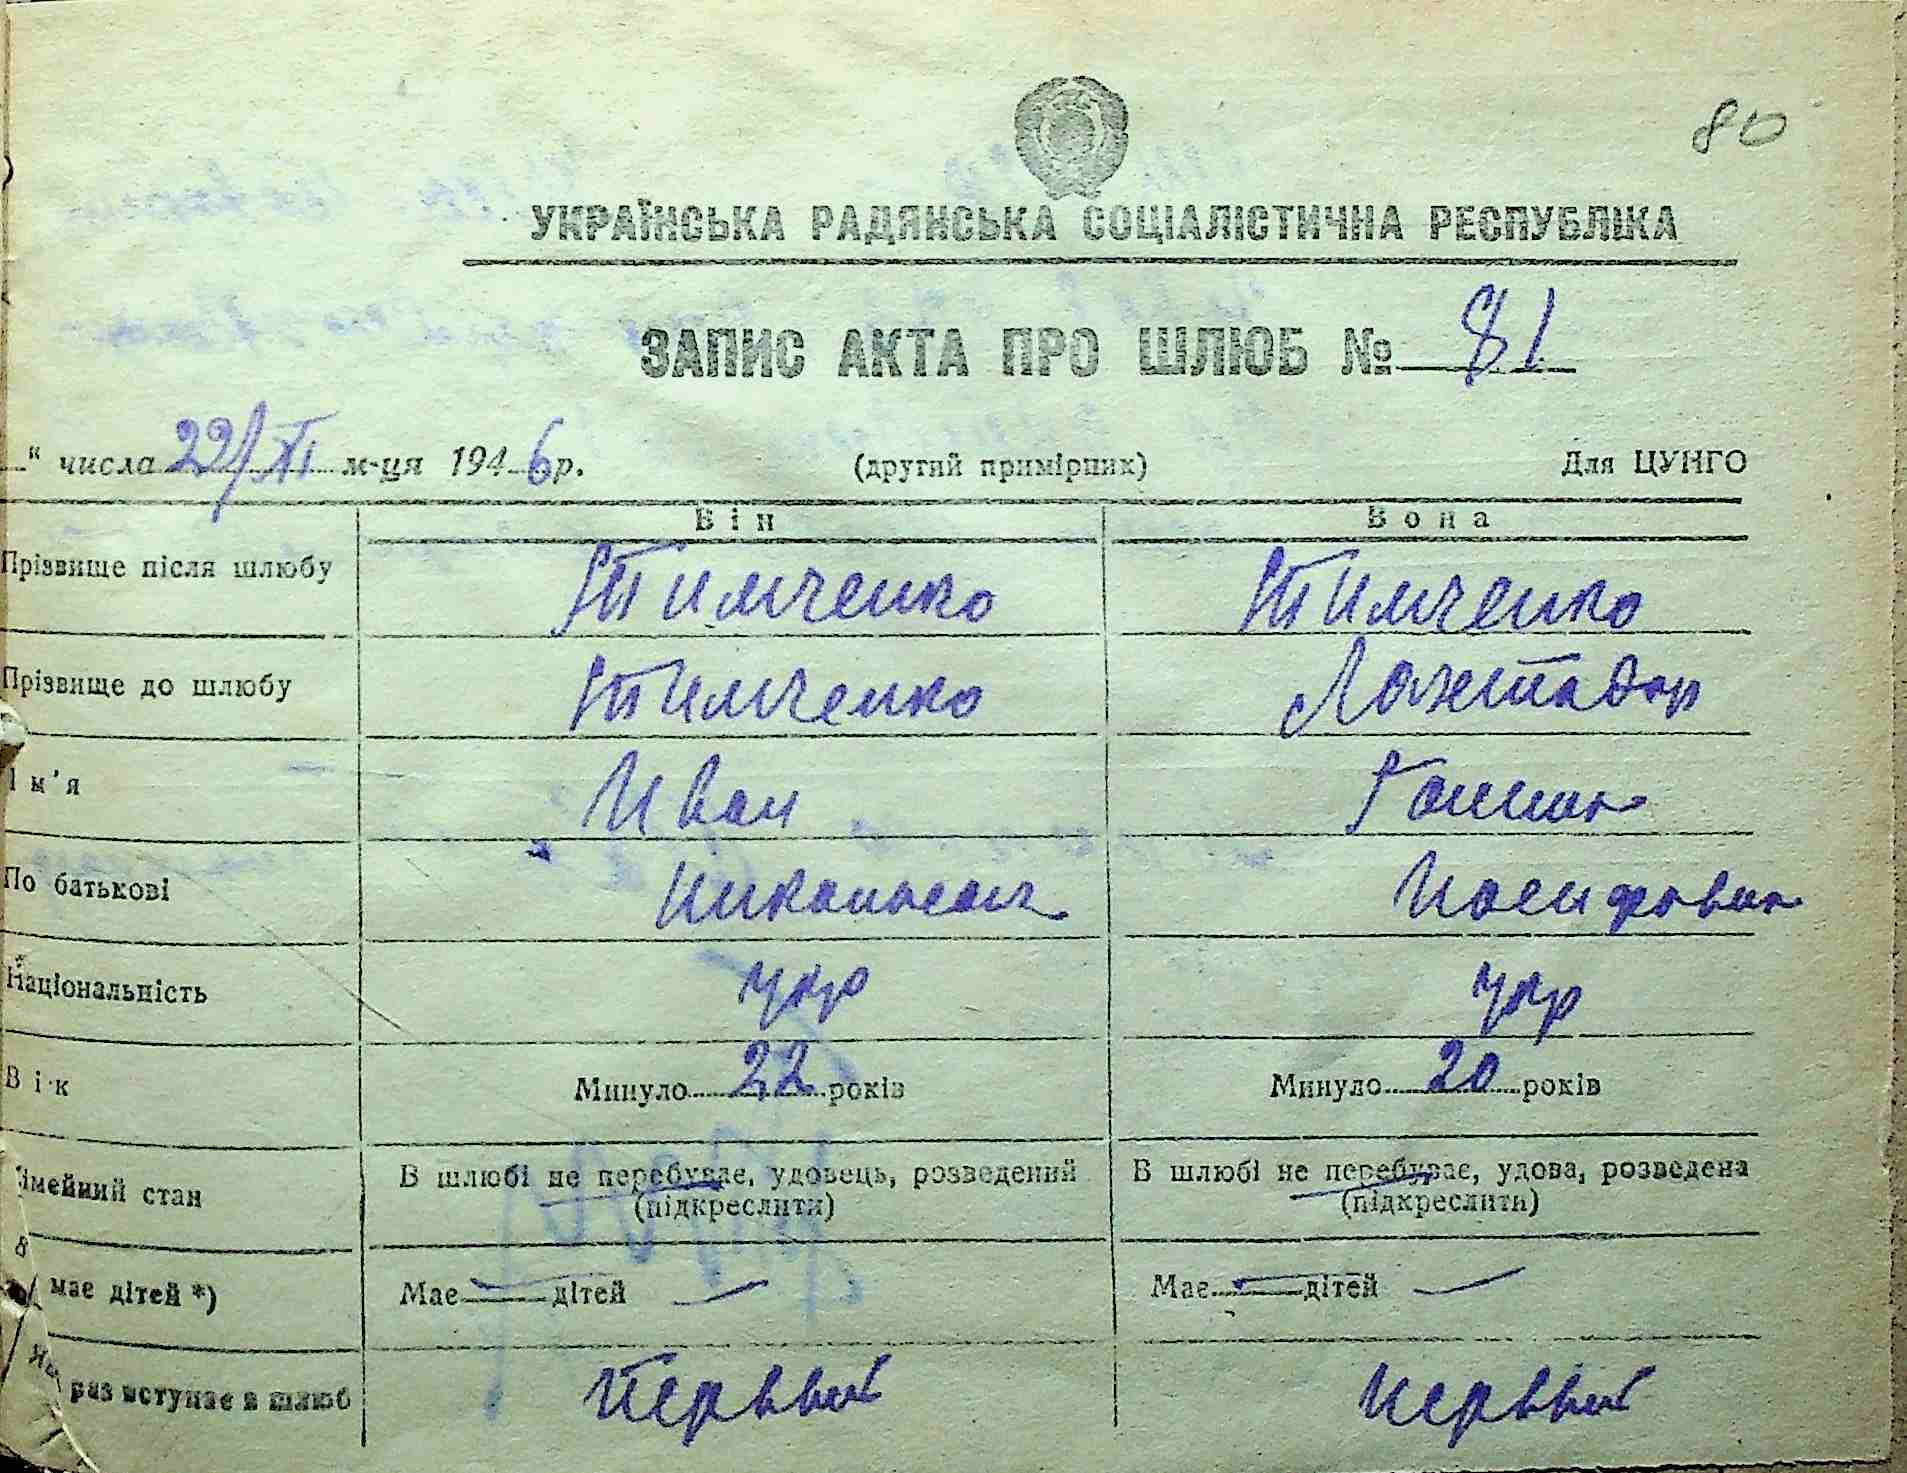 80
УКРАЇНСЬКА РАДЯНСЬКА СОЦІАЛІСТИЧНА РЕСПУБЛІКА
ЗАПИС АКТА ПРО ШЛЮБ № 81
" числа 22/XI м-ця 1946 р. (другий примірник) Для ЦУНГО
Він Вона
Прізвище після шлюбу Тимченко Тимченко
Прізвище до шлюбу Тимченко
Ім'я Иван Галина
По батькові Николаевич Иосифовна
Національність укр укр
Вік Минуло 22 років Минуло 20 років
імейний стан В шлюбі не перебуває, удовець, розведений (підкреслити) В шлюбі не перебуває, удова, розведена (підкреслити)
має дітей *) Має — дітей — Має — дітей —
раз вступає в шлюб Первый Первый